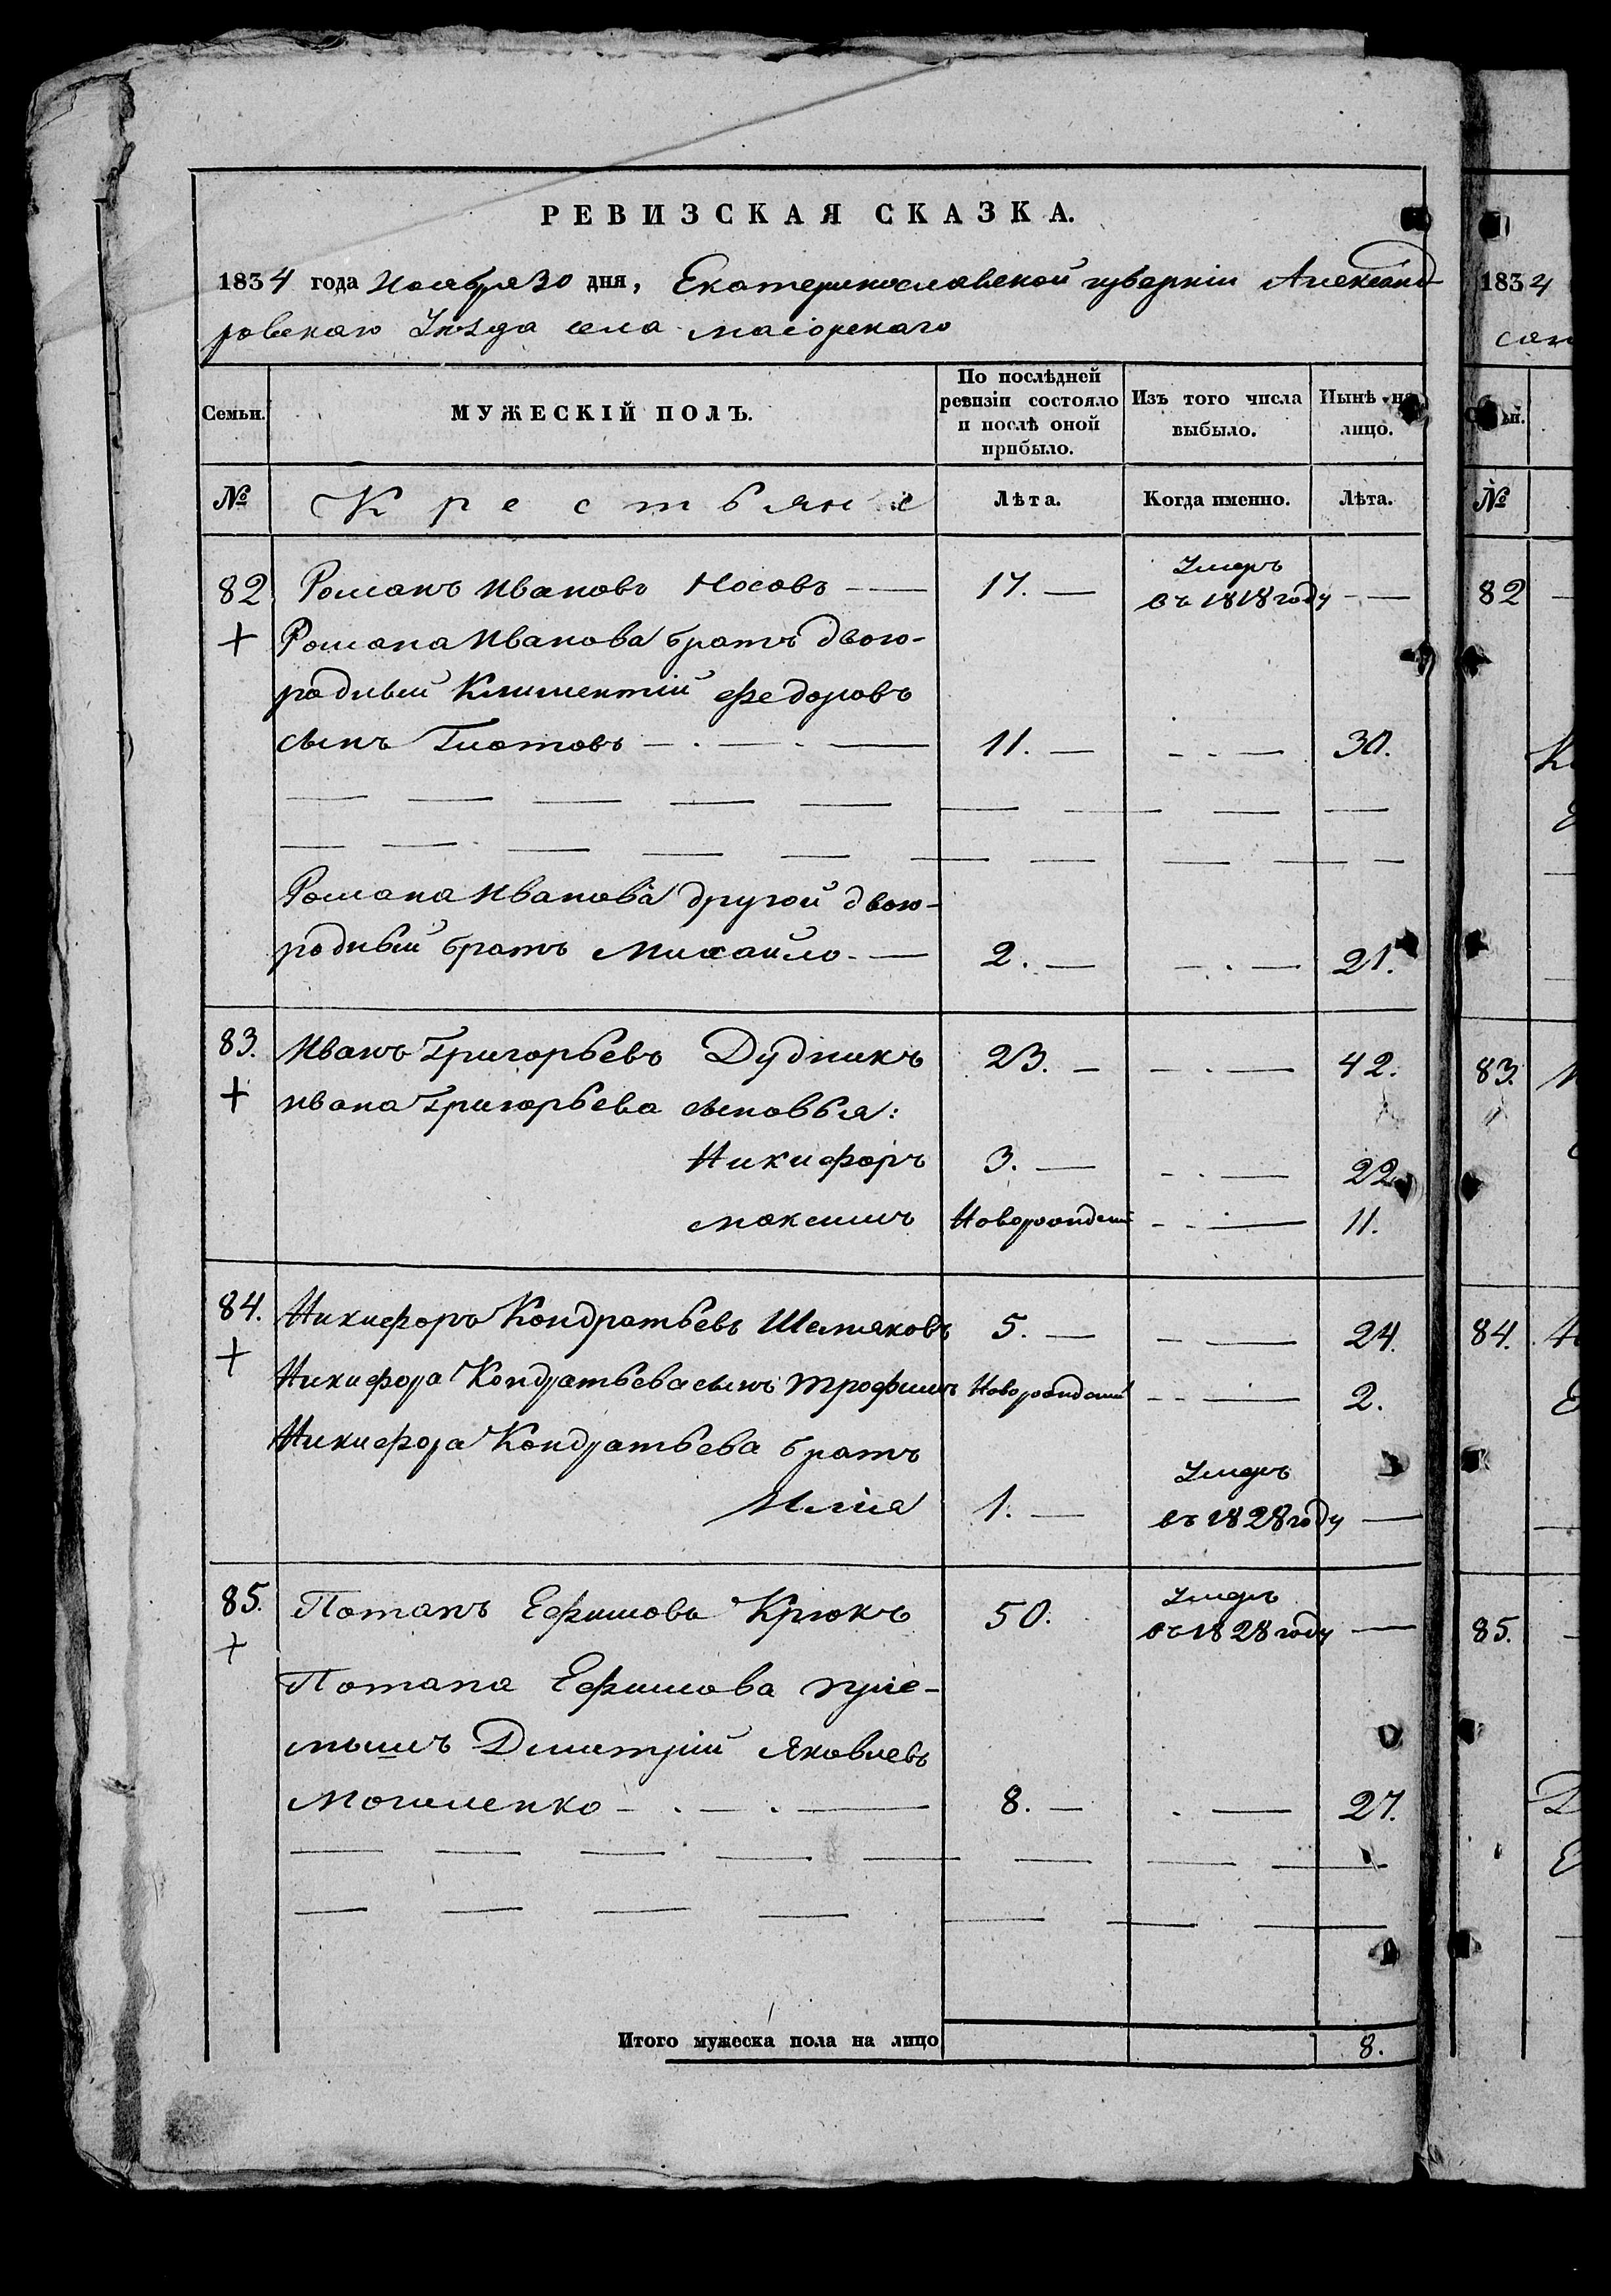 РЕВИЗСКАЯ СКАЗКА.
1834 года Ноября 30 дня, Екатеринославской губерніи Александ-
ровскаго Уѣзда села Маіорскаго
Семьи. МУЖЕСКІЙ ПОЛЪ. По послѣдней ревизіи состояло и послѣ оной прибыло. Изъ того числа выбыло. Нынѣ на лицо.
№ Крестьяне Лѣта. Когда именно. Лѣта.
82 Романъ Ивановъ Носовъ 17. Умеръ въ 1818 году
+ Романа Иванова братъ двою-
родный Климентій Федоровъ
сынъ 11. 30.
Романа Иванова другой двою-
родный братъ Михайло 2. 21.
83. Иванъ Григорьевъ Дудникъ 23. 42.
+ Ивана Григорьева сыновья:
Никифоръ 3. 22
Максимъ Новорожденый 11.
84. Никифоръ Кондратьевъ Шемяковъ 5. 24.
+ Никифора Кондратьева сынъ Трофимъ Новорожденый 2.
Никифора Кондратьева братъ
Илія 1. Умеръ въ 1828 году
85. Потапъ Ефимовъ Крюкъ 50. Умеръ въ 1828 году
+ Потапа Ефимова пріе-
мышъ Дмитрій Яковлевъ
8. 27.
Итого мужеска пола на лицо 8.
1834
№
82
83.
84.
85.